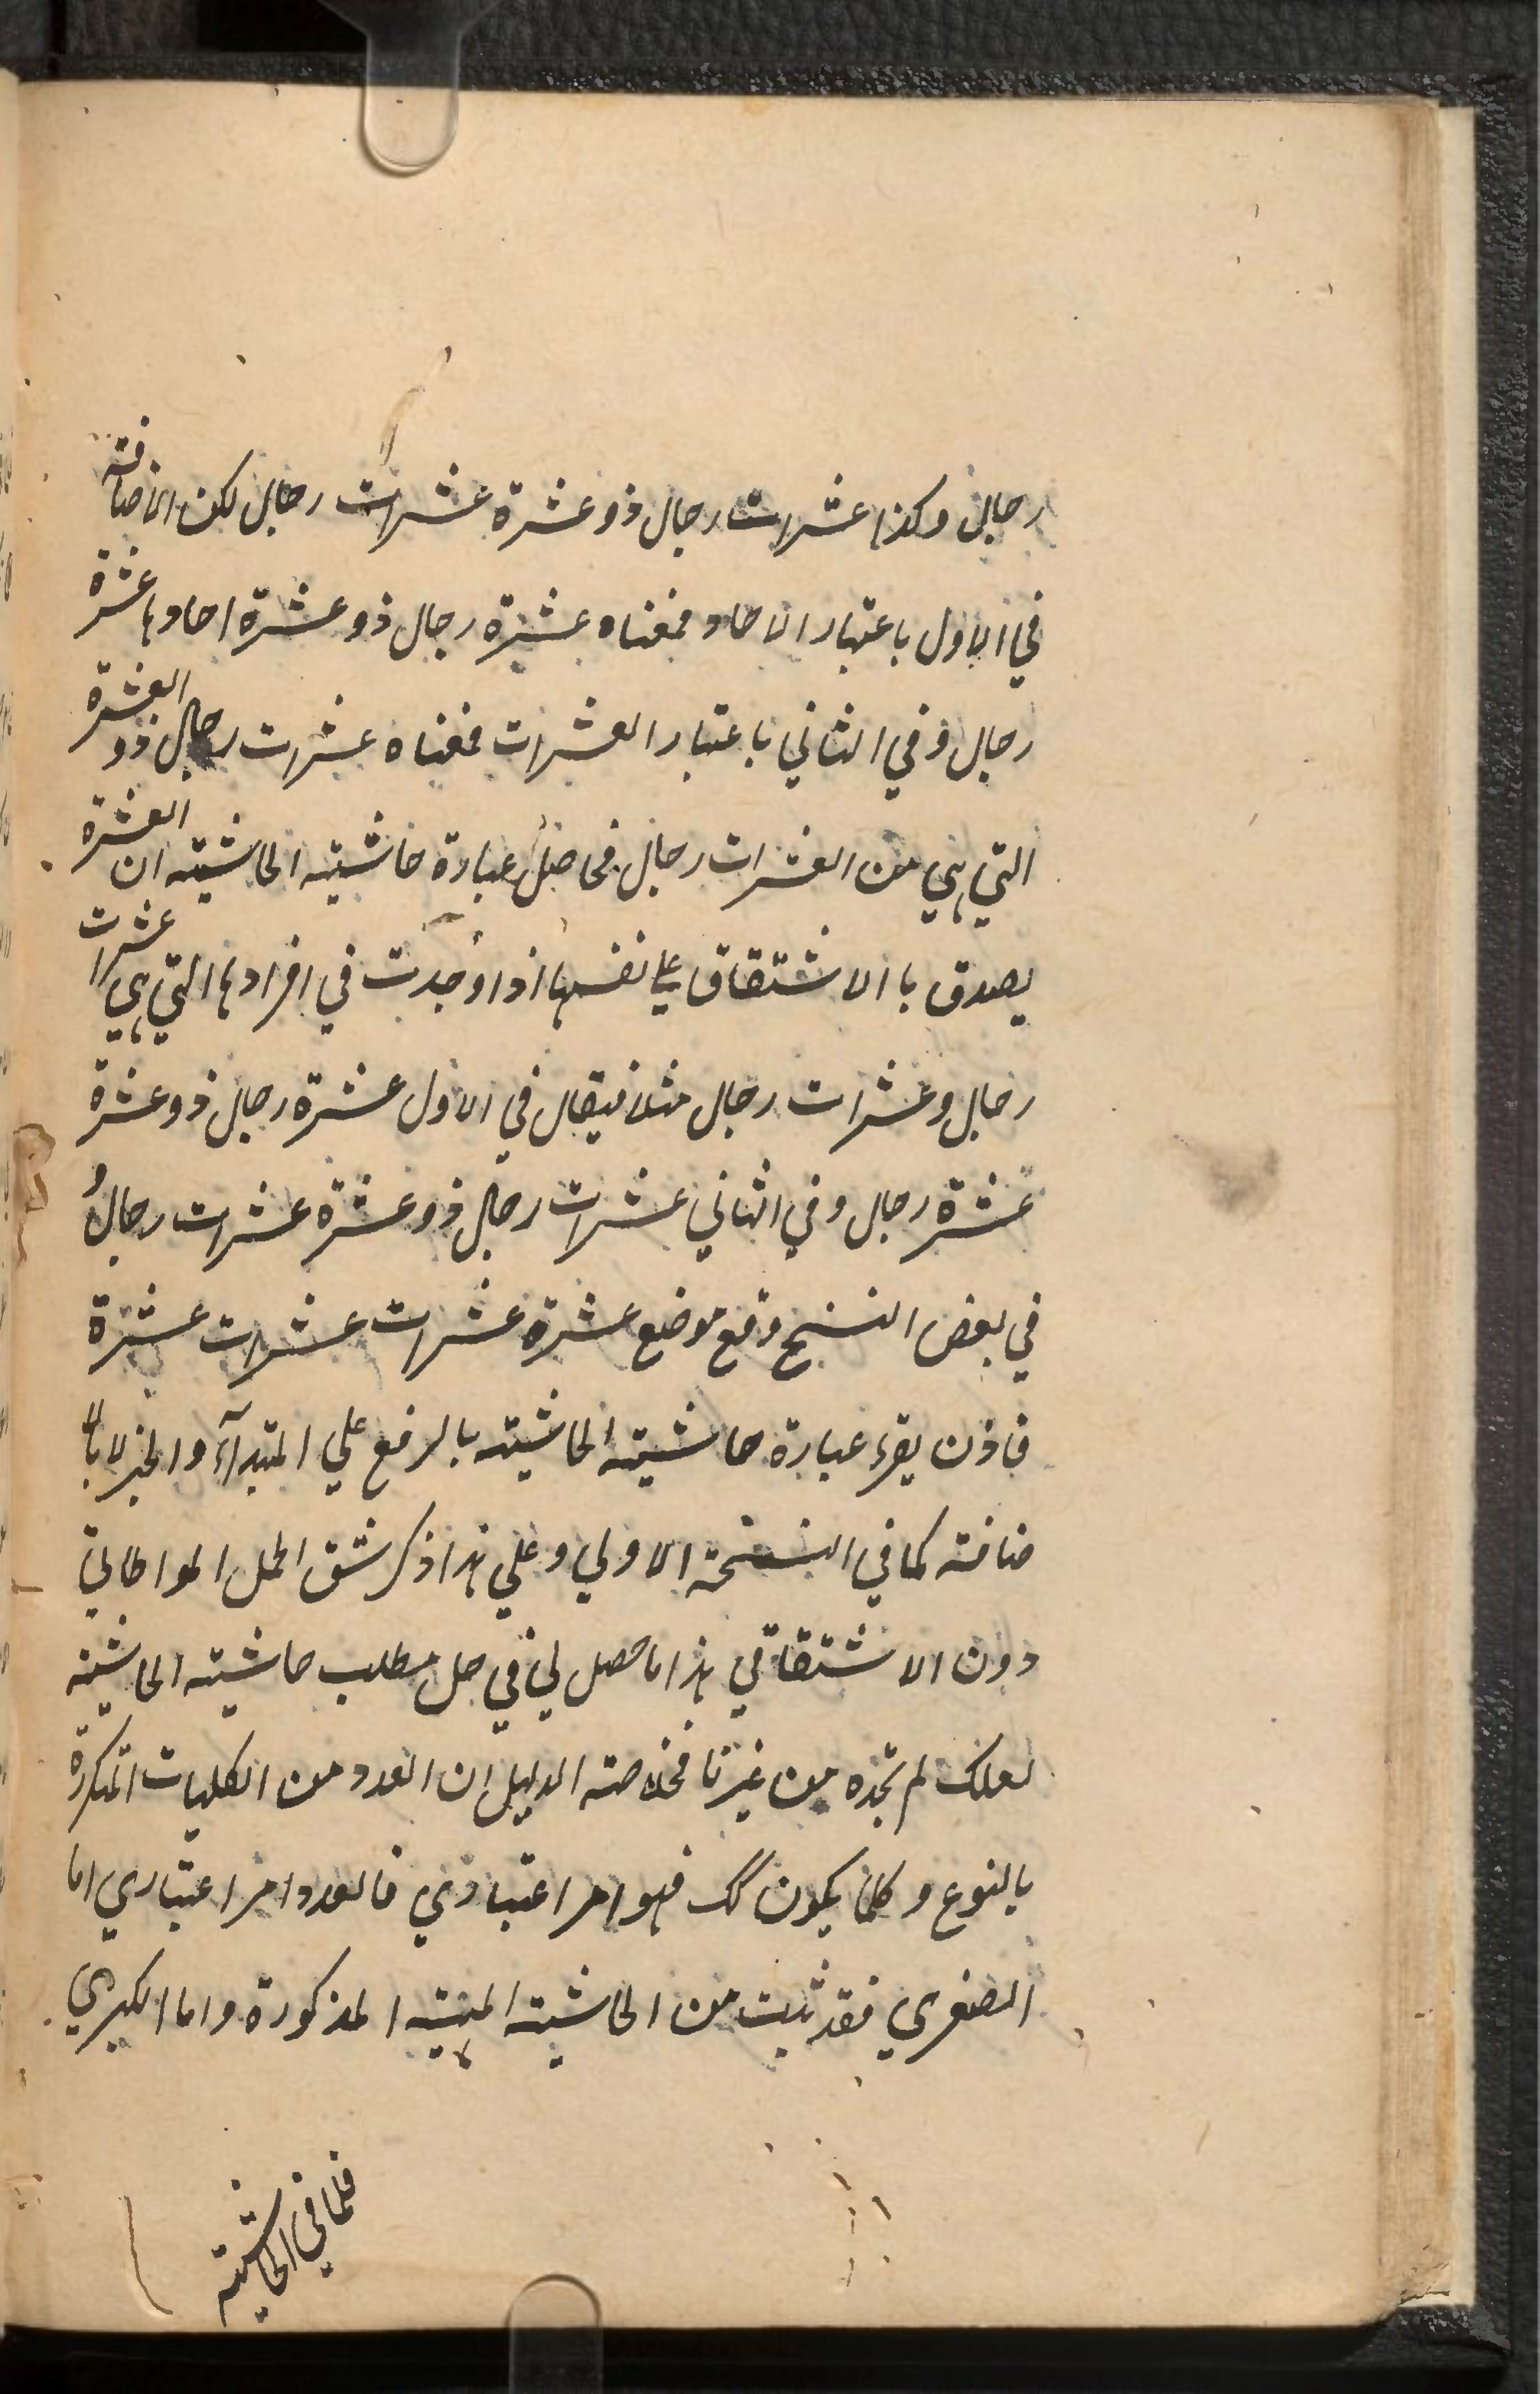 رجال وكذا عشرات رجال ذو عشرة عشرات رجال لكن الاضافة
في الاول باعتبار الاحاد فمعناه عشرة رجال ذو عشرة احادها عشرة
رجال و في الثاني باعتبار العشرات فمعناه عشرات رجال ذو العشرة
التي هي من العشرات رجال فحاصل عبارة حاشيته الحاشية ان العشرة
يصدق باالاشتقاق على نفسها اذا وجدت في افرادها التي هي عشرات
رجال وعشرات رجال مثلا فيقال في الاول عشرة رجال ذو عشرة
عشرة رجال وفي الثاني عشرات رجال ذو عشرة عشرات رجال و
في بعض النسخ وقع موضع عشرة عشرات عشرات عشرة
فاذن يقرء عبارة حاشيته الحاشيته بالرفع علي المبتدآء والخبر لا بالا
ضافته كما في النسخة الاولي وعلي هذا ذكر شق الحمل المواطاتي
دون الاشتقاقي هذا ما حصل لي في حل مطلب حاشيته الحاشيته
لعلك لم تجده من غيرنا فخلاصته الدليل ان العدد من الكليات المتكررة
بالنوع وكلما يكون كك فهو امر اعتباري فالعدد امر اعتباري اما
الصغري فقد ثبت من الحاشيته المنيته المذكورة واما الكبري
فلما في الحاشيته